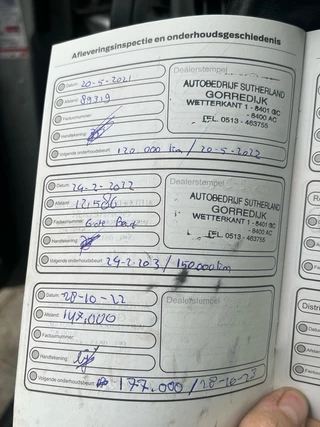 Afleveringsinspectie en onderhoudsgeschiedenis
Datum: 20-5-2021
Dealerstempel
Afstand: 89719
Factuurnummer:
Handtekening:
AUTOBEDRIJF SUTHERLAND
GORREDIJK
WETTERKANT 1 - 8401 GC
- 8400 AC
TEL. 0513 - 463755
Volgende onderhoudsbeurt: 120.000 km / 20-5-2022
Datum: 24-2-2022
Dealerstempel
Afstand:
Factuurnummer: Grote Beurt
Handtekening:
AUTOBEDRIJF SUTHERLAND
GORREDIJK
WETTERKANT 1 - 8401 GC
- 8400 AC
TEL. 0513 - 463755
Volgende onderhoudsbeurt: 24-2-203 / 150000km
Datum: 28-10-22
Dealerstempel
Afstand: 147.000
Factuurnummer:
Handtekening:
Volgende onderhoudsbeurt: 177.000 / 28-10-23